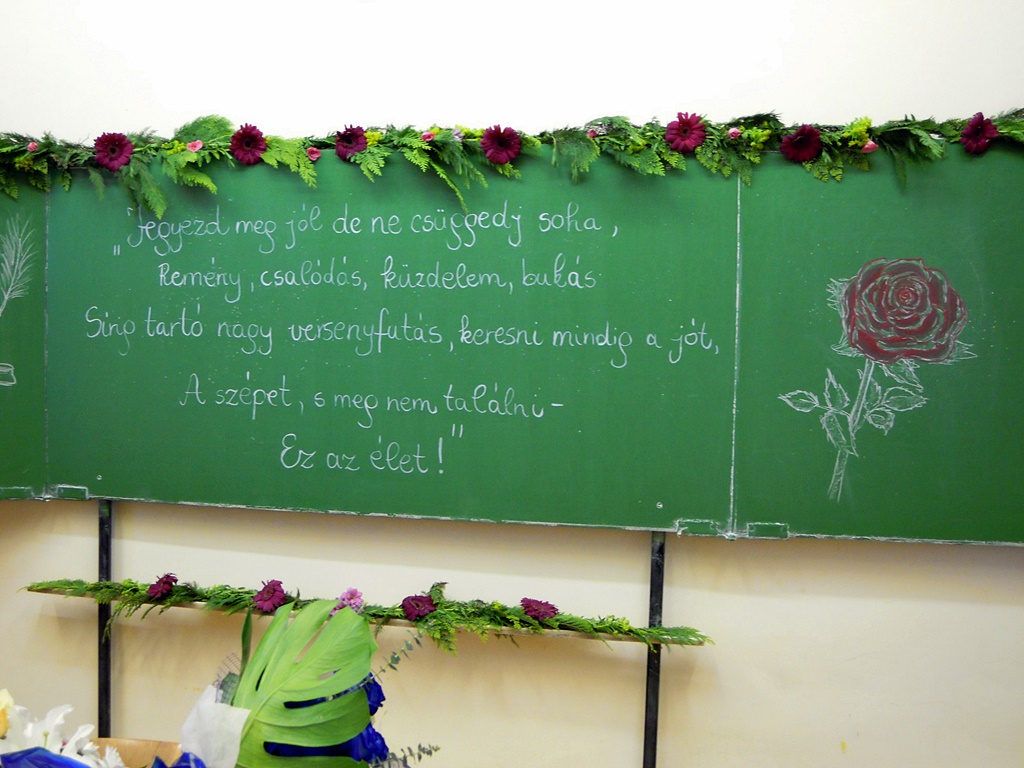 „Jegyezd meg jól de ne csüggedj soha,
Remény, csalódás, küzdelem, bukás
Sírig tartó nagy versenyfutás, keresni mindig a jót,
A szépet, s meg nem találni-
Ez az élet!"